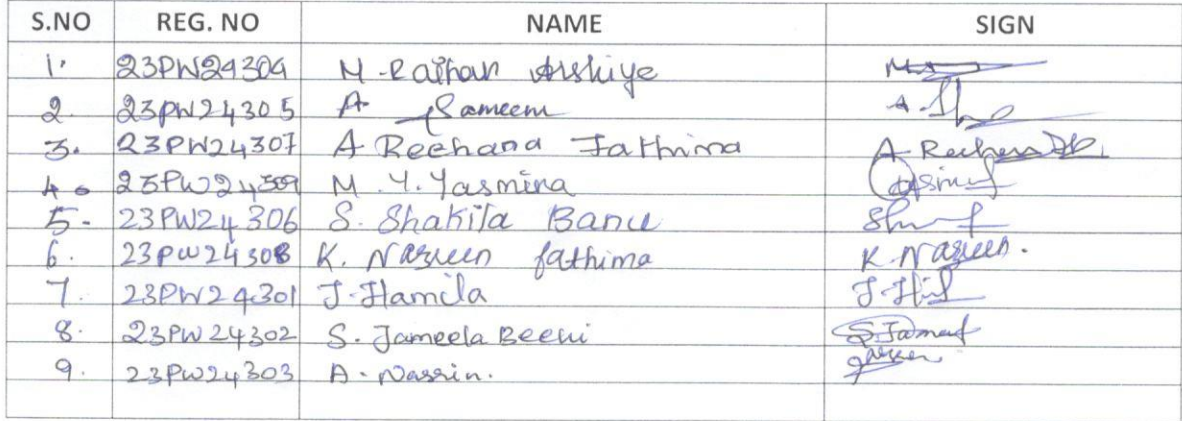 S.NO REG. NO NAME SIGN
1. 23PW24304 M. Raihan Arshiye
2. 23PW24305 A Sameem A.
3. 23PW24307 A Reehana Fathima A Reehana
4. 23PW24309 M. Y. Yasmina
5. 23PW24306 S. Shakila Banu
6. 23PW24308 K. Nazreen fathima K. Nazreen.
7. 23PW24301 J. Hamila
8. 23PW24302 S. Jameela Beevi
9. 23PW24303 A. Nasrin.